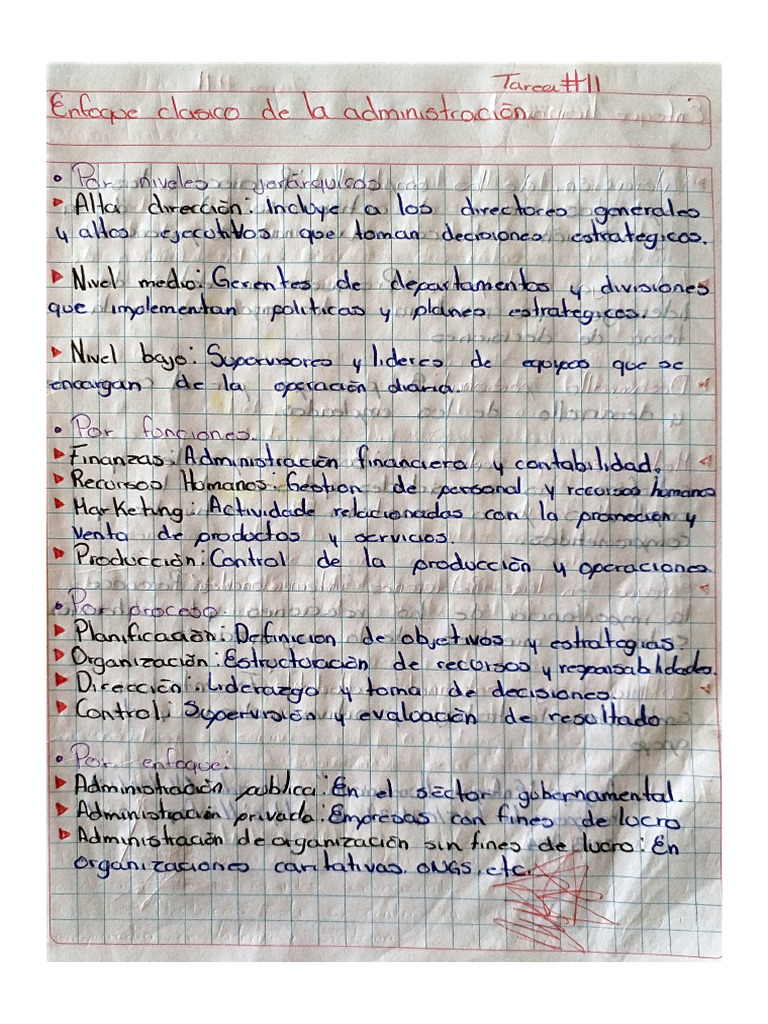 Tarea #11
Enfoque clasico de la administración
• Por niveles jerárquicos
Alta dirección: Incluye a los directores generales
y altos ejecutivos que toman decisiones estrategicos.
Nivel medio: Gerentes de departamentos y divisiones
que implementan politicas y planes estrategicos.
Nivel bajo: Supervisores y lideres de equipos que se
encargan de la operación diaria.
• Por funciones.
Finanzas: Administración financiera y contabilidad.
Recursos Humanos: Gestion de personal y recursos humanos
Marketing: Actividade relacionadas con la promocion y
venta de productos y servicios.
Producción: Control de la producción y operaciones.
• Por proceso.
Planificación: Definicion de objetivos y estrategias.
Organización: Estructuración de recursos y responsabilidades.
Dirección: Liderazgo y toma de decisiones.
Control: Supervisión y evaluación de resultado
• Por enfoque:
Administración publica: En el sector gubernamental.
Administración privada: Empresas con fines de lucro
Administración de organización sin fines de lucro: En
organizaciones caritativas. ONGS, etc.